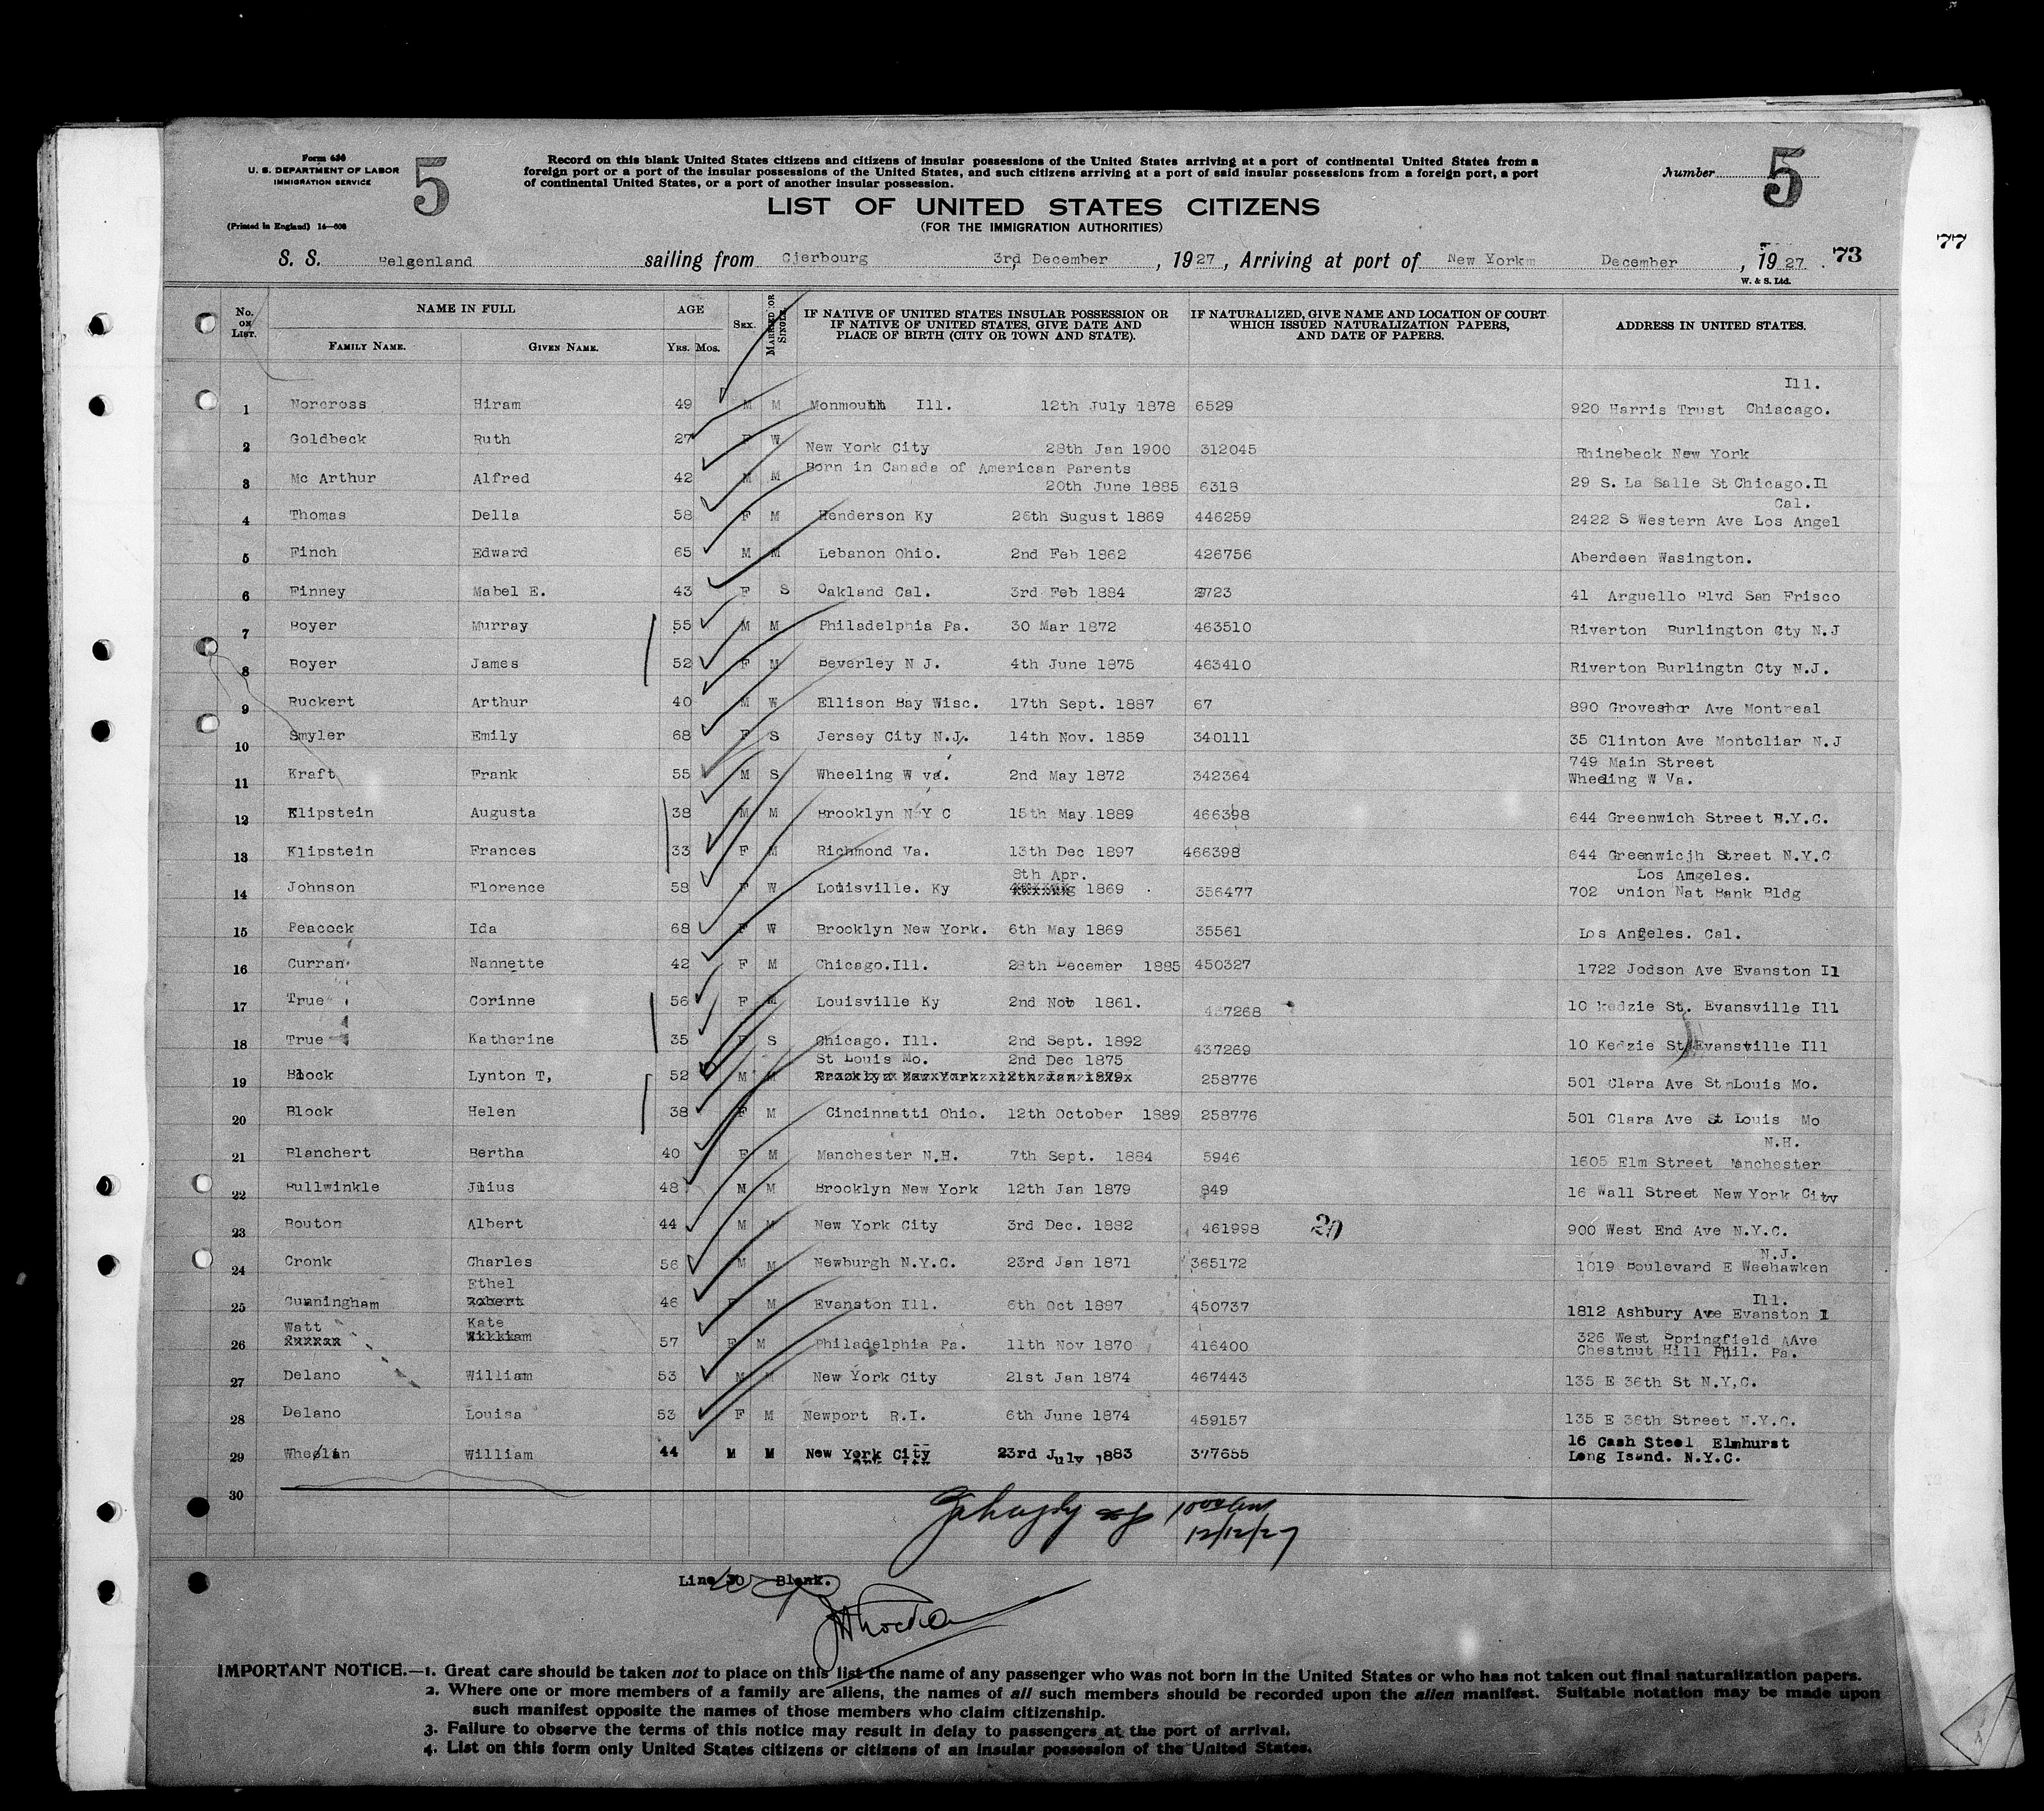 Form 630
U. S. DEPARTMENT OF LABOR
IMMIGRATION SERVICE
5
(Printed in England) 14—608
Record on this blank United States citizens and citizens of insular possessions of the United States arriving at a port of continental United States from a
foreign port or a port of the insular possessions of the United States, and such citizens arriving at a port of said insular possessions from a foreign port, a port
of continental United States, or a port of another insular possession.
Number 5
LIST OF UNITED STATES CITIZENS
(FOR THE IMMIGRATION AUTHORITIES)
77
S. S. Belgenland sailing from Cjerbourg 3rd December , 1927 , Arriving at port of New Yorkm December , 19 27 . 73
W. & S. Ltd.
No. ON LIST. NAME IN FULL AGE SEX. MARRIED OR SINGLE IF NATIVE OF UNITED STATES INSULAR POSSESSION OR IF NATIVE OF UNITED STATES, GIVE DATE AND PLACE OF BIRTH (CITY OR TOWN AND STATE). IF NATURALIZED, GIVE NAME AND LOCATION OF COURT WHICH ISSUED NATURALIZATION PAPERS, AND DATE OF PAPERS. ADDRESS IN UNITED STATES.
FAMILY NAME. GIVEN NAME. YRS. MOS.
Ill.
1 Norcross Hiram 49 M M Monmouth Ill. 12th July 1878 6529 920 Harris Trust Chiacago.
2 Goldbeck Ruth 27 F W New York City 28th Jan 1900 312045 Rhinebeck New York
Born in Canada of American Parents
3 Mc Arthur Alfred 42 M M 20th June 1885 6318 29 S. La Salle St Chicago.Il
Cal.
4 Thomas Della 58 F M Henderson Ky 26th Sugust 1869 446259 2422 S Western Ave Los Angel
5 Finch Edward 65 M M Lebanon Ohio. 2nd Feb 1862 426756 Aberdeen Wasington.
6 Finney Mabel E. 43 F S Oakland Cal. 3rd Feb 1884 2723 41 Arguello Blvd San Frisco
7 Boyer Murray 55 M M Philadelphia Pa. 30 Mar 1872 463510 Riverton Burlington Cty N.J
8 Boyer James 52 F M Beverley N J. 4th June 1875 463410 Riverton Burlingtn Cty N.J.
9 Ruckert Arthur 40 M W Ellison Bay Wisc. 17th Sept. 1887 67 890 Groveshor Ave Montreal
10 Smyler Emily 68 F S Jersey City N.J. 14th Nov. 1859 340111 35 Clinton Ave Montcliar N.J
749 Main Street
11 Kraft Frank 55 M S Wheeling W va. 2nd May 1872 342364 Wheeling W Va.
12 Klipstein Augusta 38 M M Brooklyn N Y C 15th May 1889 466398 644 Greenwich Street N.Y.C.
13 Klipstein Frances 33 F M Richmond Va. 13th Dec 1897 466398 644 Greenwicjh Street N.Y.C
8th Apr. Los Amgeles.
14 Johnson Florence 58 F W Louisville. Ky 1869 356477 702 Union Nat Bank Bldg
15 Peacock Ida 68 F W Brooklyn New York. 6th May 1869 35561 Los Angeles. Cal.
16 Curran Nannette 42 F M Chicago.Ill. 28th Decemer 1885 450327 1722 Jodson Ave Evanston Il
17 True Corinne 56 F M Louisville Ky 2nd Nob 1861. 437268 10 Kedzie St. Evansville Ill
18 True Katherine 35 F S Chicago. Ill. 2nd Sept. 1892 437269 10 Kedzie St. Evansville Ill
St Louis Mo. 2nd Dec 1875
19 Block Lynton T, 52 M M Brooklyn New York 12th Jan 1879 258776 501 Clara Ave St Louis Mo.
20 Block Helen 38 F M Cincinnatti Ohio. 12th October 1889 258776 501 Clara Ave St Louis Mo
N.H.
21 Blanchert Bertha 40 F M Manchester N.H. 7th Sept. 1884 5946 1605 Elm Street Manchester
22 Bullwinkle Jlius 48 M M Brooklyn New York 12th Jan 1879 849 16 Wall Street New York City
23 Bouton Albert 44 M M New York City 3rd Dec. 1882 461998 20 900 West End Ave N.Y.C.
N.J.
24 Cronk Charles 56 M M Newburgh N.Y.C. 23rd Jan 1871 365172 1019 Boulevard E Weehawken
Ethel Ill.
25 Cunningham Robert 46 F M Evanston Ill. 6th Oct 1887 450737 1812 Ashbury Ave Evanston I
Watt Kate 326 West Springfield AAve
26 William 57 F M Philadelphia Pa. 11th Nov 1870 416400 Chestnut Hill Phil. Pa.
27 Delano William 53 M M New York City 21st Jan 1874 467443 135 E 36th St N.Y,C.
28 Delano Louisa 53 F M Newport R.I. 6th June 1874 459157 135 E 36th Street N.Y.C.
16 Cash Steel Elmhurst
29 Wheelan William 44 M M New York City 23rd July 1883 377655 Long Isand. N.Y.C.
30
12/12/27
Line 30 Blank.
IMPORTANT NOTICE.—1. Great care should be taken not to place on this list the name of any passenger who was not born in the United States or who has not taken out final naturalization papers.
2. Where one or more members of a family are aliens, the names of all such members should be recorded upon the alien manifest. Suitable notation may be made upon
such manifest opposite the names of those members who claim citizenship.
3. Failure to observe the terms of this notice may result in delay to passengers at the port of arrival.
4. List on this form only United States citizens or citizens of an insular possession of the United States.